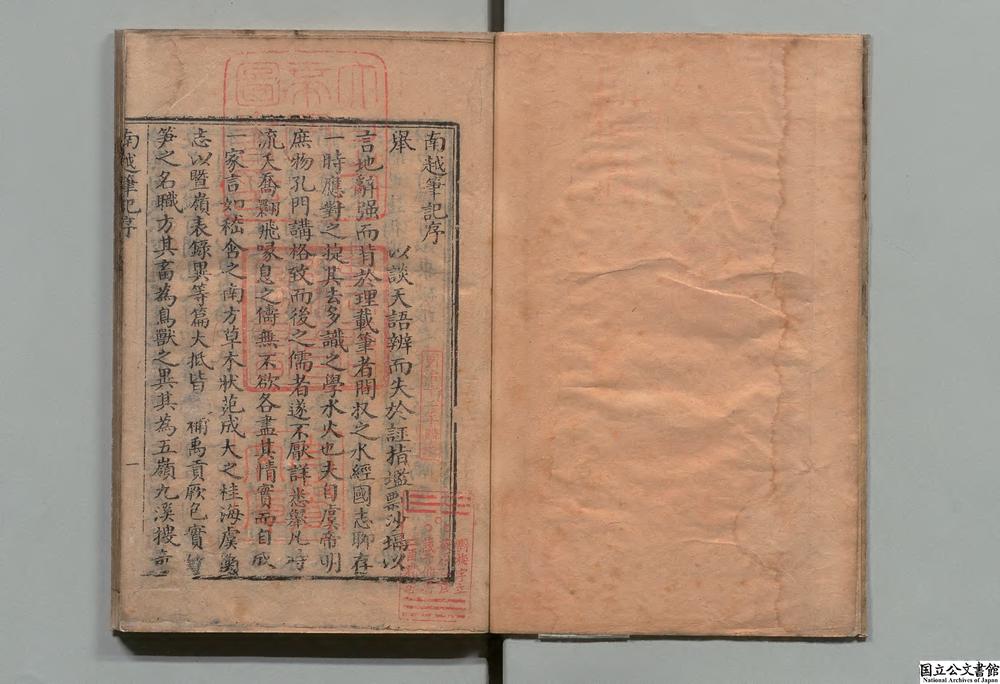 南越筆記序
舉 以談天語辨而失於誣指墟剽沙堨以
言地辭强而背於理載筆者間収之水經國志聊存
一時應對之捷其去多識之學水火也夫自虞帝明
庶物孔門講格致而後之儒者遂不厭詳悉舉凡峙
流夭喬翾飛喙息之儔無不欲各盡其情實而自成
一家言如嵇含之南方草木狀范成大之桂海虞衡
志以暨嶺表錄異等篇大抵皆 禹貢厥包實
筍之名職方其畜為鳥獸之異其為五嶺九溪搜奇
南越筆記序
一
國立公文書館
National Archives of Japan